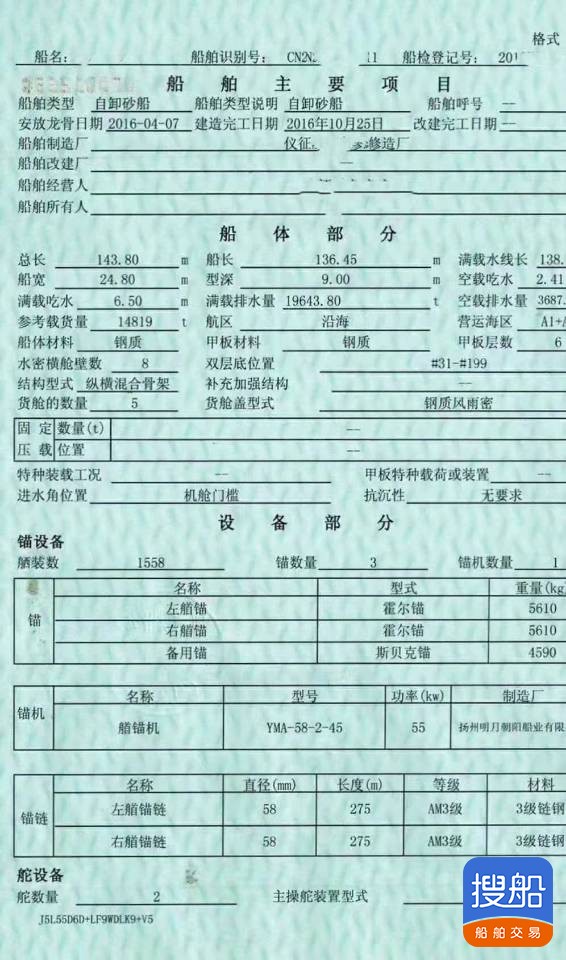 格式
船名： 船舶识别号： CN2N 11 船检登记号： 201
船 舶 主 要 项 目
船舶类型 自卸砂船 船舶类型说明 自卸砂船 船舶呼号 --
安放龙骨日期 2016-04-07 建造完工日期 2016年10月25日 改建完工日期 --
船舶制造厂 仪征 修造厂
船舶改建厂 --
船舶经营人
船舶所有人
船 体 部 分
总长 143.80 m 船长 136.45 m 满载水线长 138.
船宽 24.80 m 型深 9.00 m 空载吃水 2.41
满载吃水 6.50 m 满载排水量 19643.80 t 空载排水量 3687.
参考载货量 14819 t 航区 沿海 营运海区 A1+A
船体材料 钢质 甲板材料 钢质 甲板层数 6
水密横舱壁数 8 双层底位置 #31-#199
结构型式 纵横混合骨架 补充加强结构 --
货舱的数量 5 货舱盖型式 钢质风雨密
固 定 数量(t) --
压 载 位置 --
特种装载工况 -- 甲板特种载荷或装置 --
进水角位置 机舱门槛 抗沉性 无要求
设 备 部 分
锚设备
舾装数 1558 锚数量 3 锚机数量 1
锚 名称 型式 重量(kg
左艏锚 霍尔锚 5610
右艏锚 霍尔锚 5610
备用锚 斯贝克锚 4590
锚机 名称 型号 功率(kw) 制造厂
艏锚机 YMA-58-2-45 55 扬州明月朝阳船业有限
锚链 名称 直径(mm) 长度(m) 等级 材料
左艏锚链 58 275 AM3级 3级链钢
右艏锚链 58 275 AM3级 3级链钢
舵设备
舵数量 2 主操舵装置型式
J5L55D6D+LF9WDLK9+V5
搜船
船舶交易